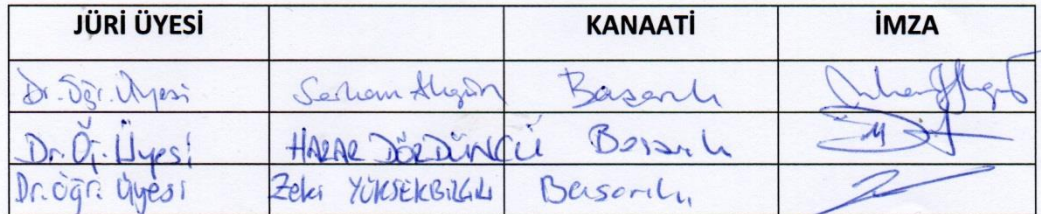 JÜRİ ÜYESİ KANAATİ İMZA
Dr. Öğr. Üyesi Serhan Akgün Başarılı
Dr. Öğ. Üyesi DÖRDÜNCÜ Başarılı
Dr. Öğr. Üyesi Zeki YÜKSEKBİLGİLİ Başarılı